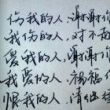 伤我的人,谢谢你
我伤的人,对不起
爱我的人,谢谢你
我爱的人,
恨我的人,